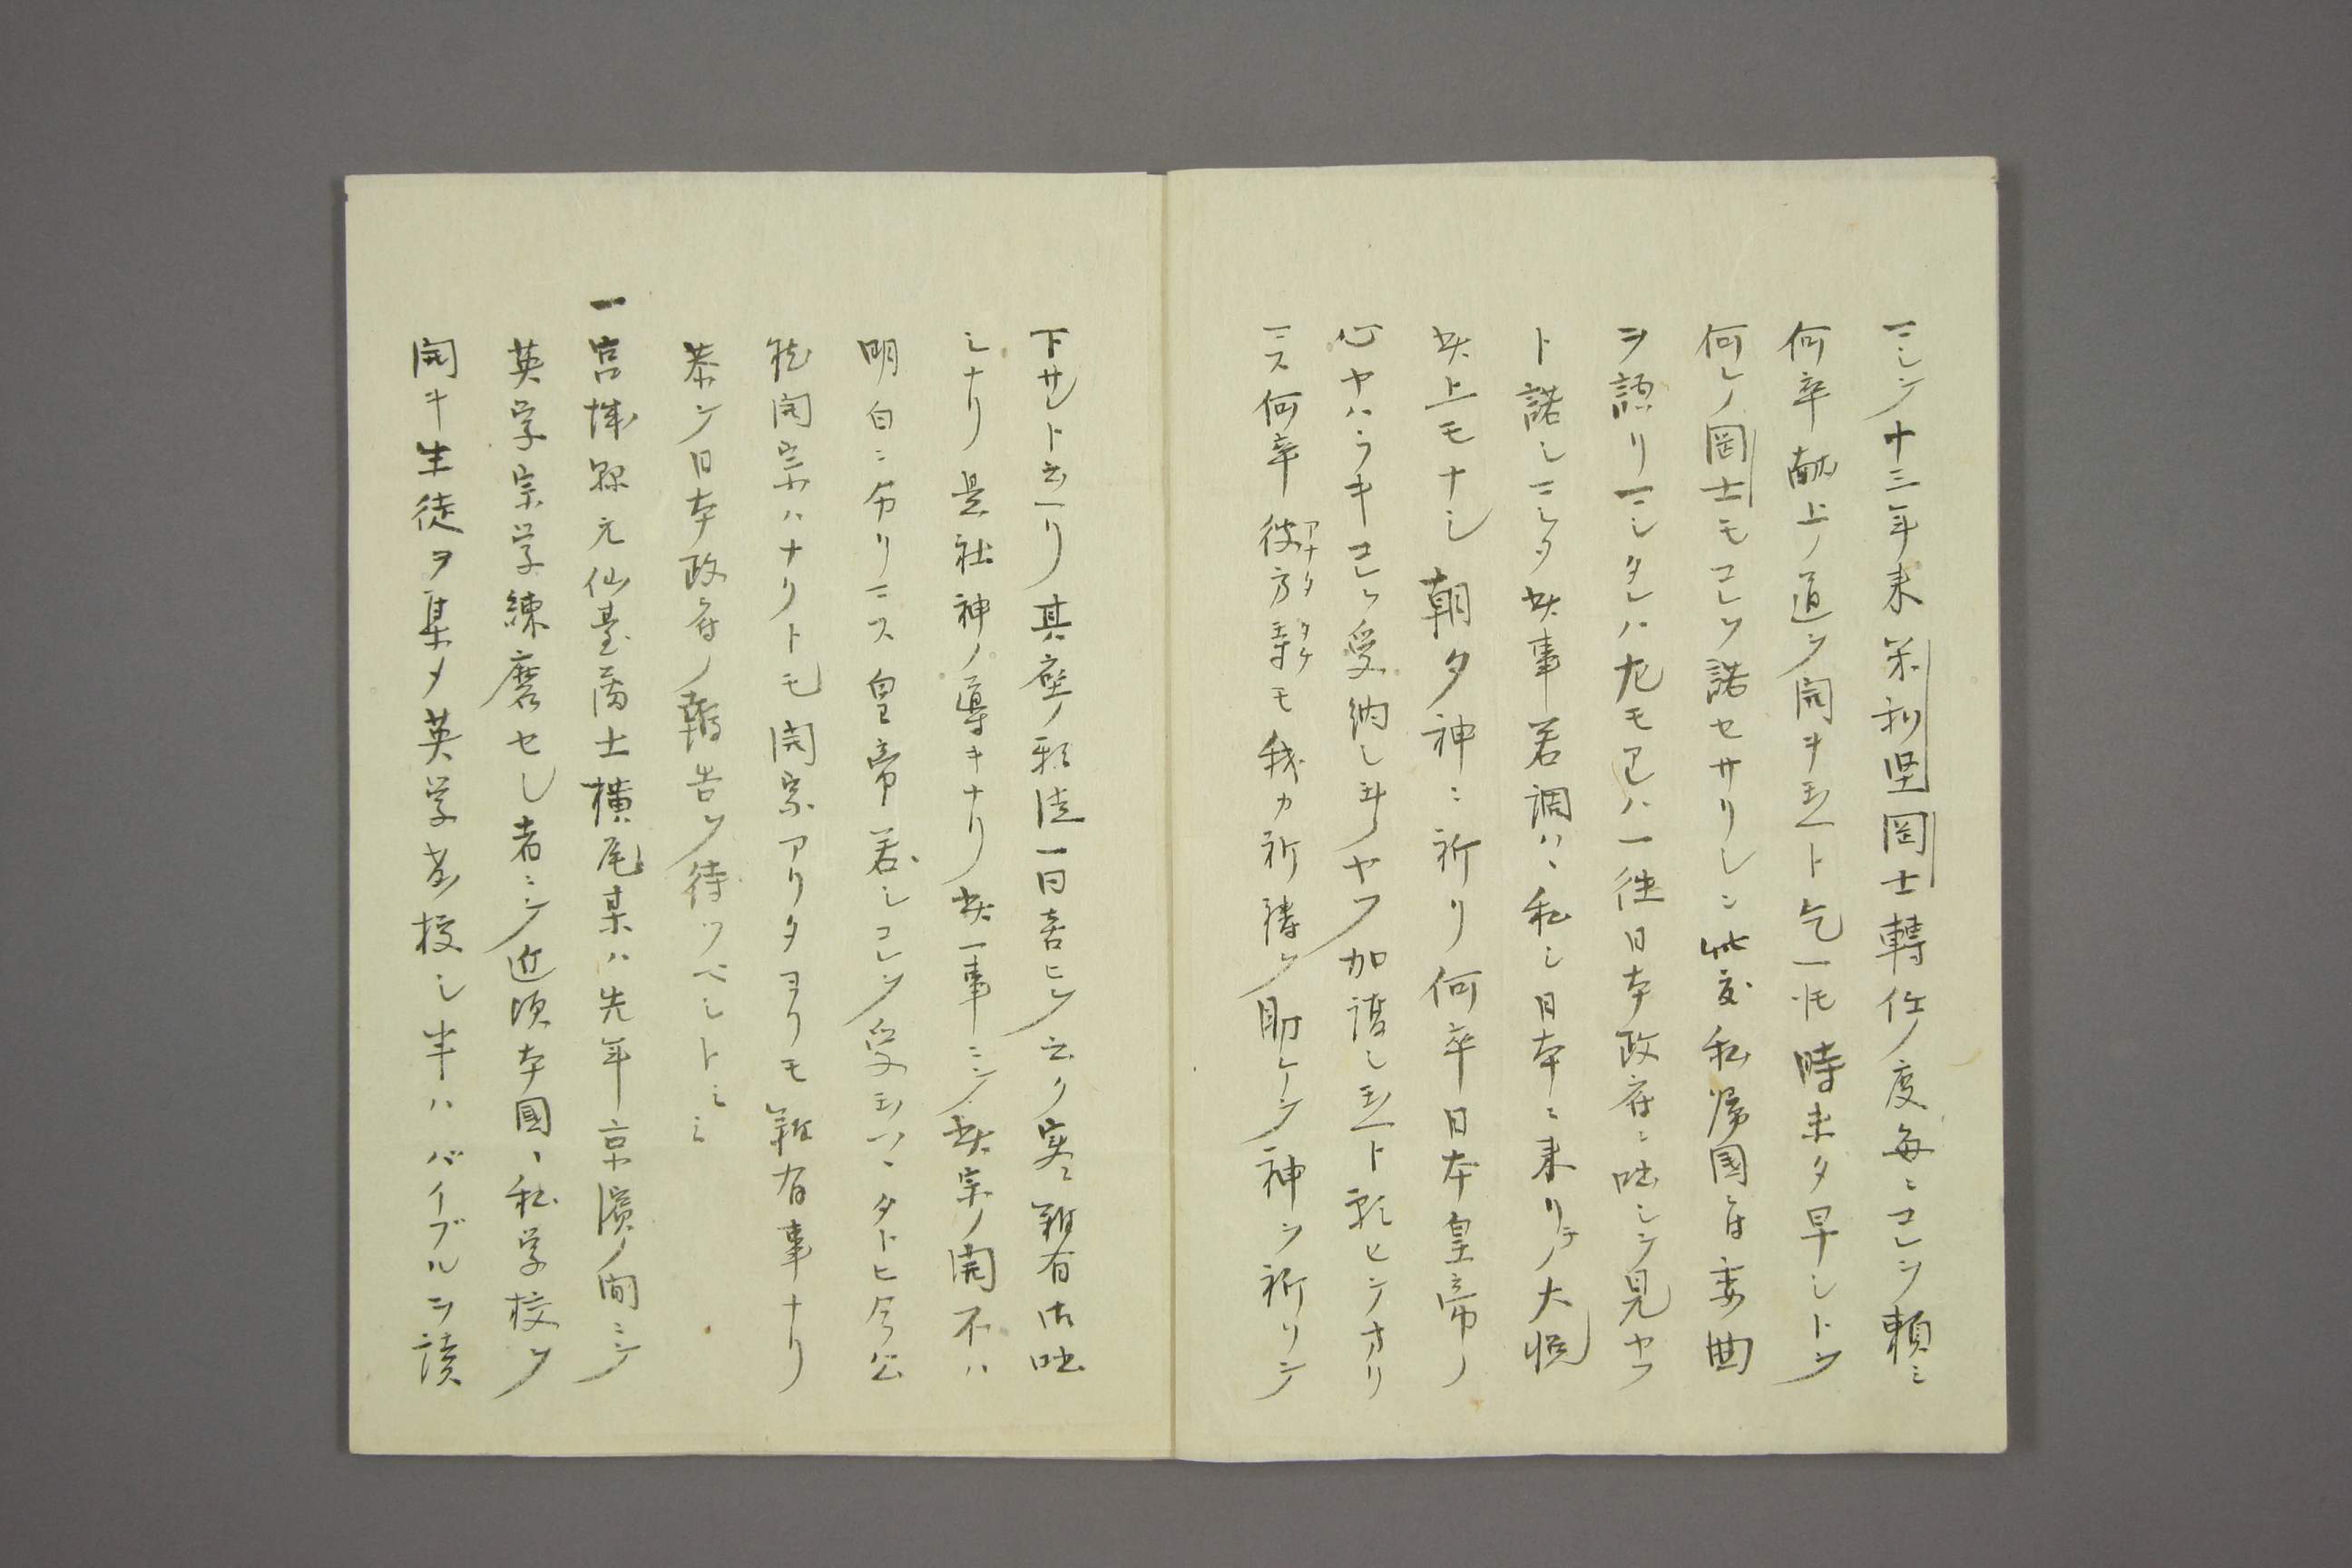 マシテ十三年来米利堅国士轉任ノ度毎ニコレヲ頼ミ
何卒献上ノ道ヲ開キ玉ヘト乞ヘ㪽時未タ早シトテ
何レノ国士モコレヲ諾セサリシニ此度私帰国ニ付委曲
ヲ語リマシタレハ尤モアレハ一往日本政府ニ咄シテ見ヤフ
ト諾シマシタ此事若調ハヽ私シ日本ニ来リテノ大悦
此上モナシ朝夕神ニ祈リ何卒日本皇帝ノ
心ヤハラキコレヲ受納シ玉フヤフ加護シ玉ヘト願ヒテオリ
マス何卒彼方静モ我カ祈祷ヲ助ケテ神ヲ祈リテ
アナタ
下サレト云ヘリ其座ノ願徒一同喜ヒテ云ク実ニ難有御咄
シナリ是社神ノ導キナリ此一事ニテ此宗ノ開不ハ
明白ニ分リマス皇帝若シコレヲ受玉ハヽタトヒ今公
然開宗ハナクトモ開宗アリタヨリモ難有事ナリ
恭テ日本政府ノ報告ヲ待ツベシトミ
一宮城縣元仙臺藩士横尾某ハ先年京濱ノ間ニテ
英学宗学練磨セシ者ニテ近頃本國ヘ私学校ヲ
開キ生徒ヲ集メ英学ヲ教授シ半ハバイブルヲ読